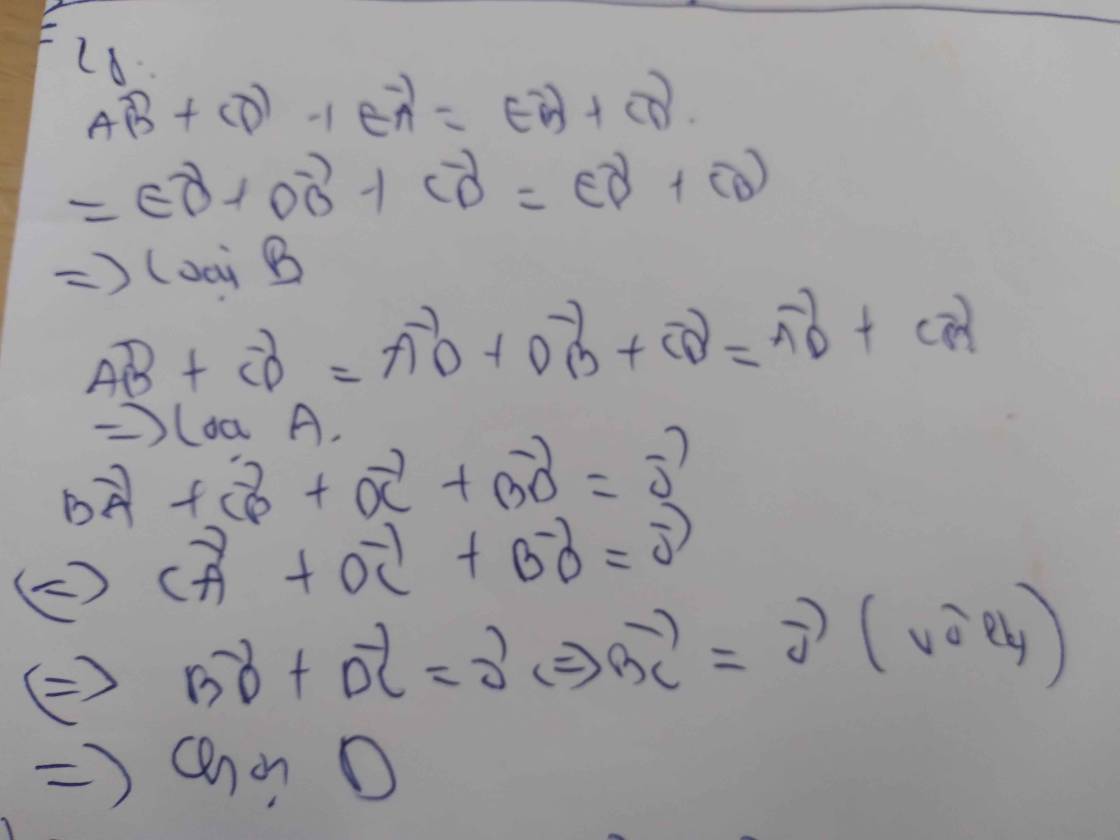 28.
AB⃗ + CD⃗ + EA⃗ = EB⃗ + CD⃗.
= ED⃗ + DB⃗ + CD⃗ = ED⃗ + CB⃗
=> loại B
AB⃗ + CD⃗ = AD⃗ + DB⃗ + CD⃗ = AD⃗ + CB⃗
=> loại A.
BA⃗ + CB⃗ + DC⃗ + BD⃗ = 0⃗
<=> CA⃗ + DC⃗ + BD⃗ = 0⃗
<=> BD⃗ + DC⃗ = 0⃗ <=> BC⃗ = 0⃗ (vô lý)
=> Chọn D